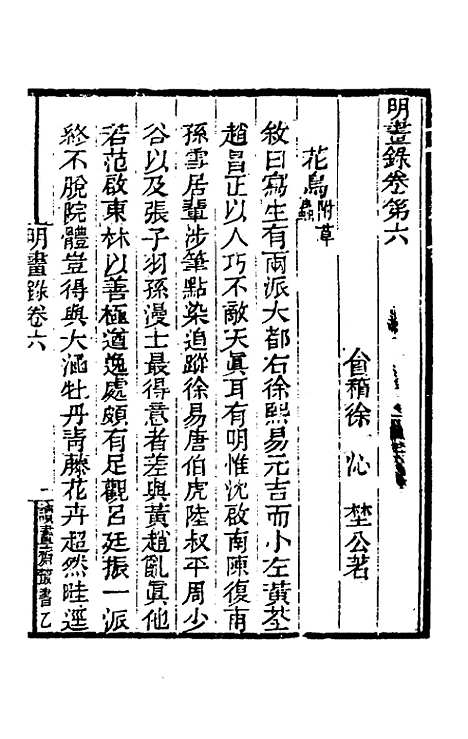 明畫錄卷第六
會稽徐沁埜公著
花鳥附草蟲
敘曰寫生有兩派大都右徐熙易元吉而小左黃荃
趙昌正以人巧不敵天眞耳有明惟沈啟南陳復甫
孫雪居輩涉筆點染追蹤徐易唐伯虎陸叔平周少
谷以及張子羽孫漫士最得意者差與黃趙亂眞他
若范啟東林以善極遒逸處頗有足觀呂廷振一派
終不脫院體豈得與大涵牡丹靑藤花卉超然畦逕
明畫錄卷六
一
讀畫齋叢書乙